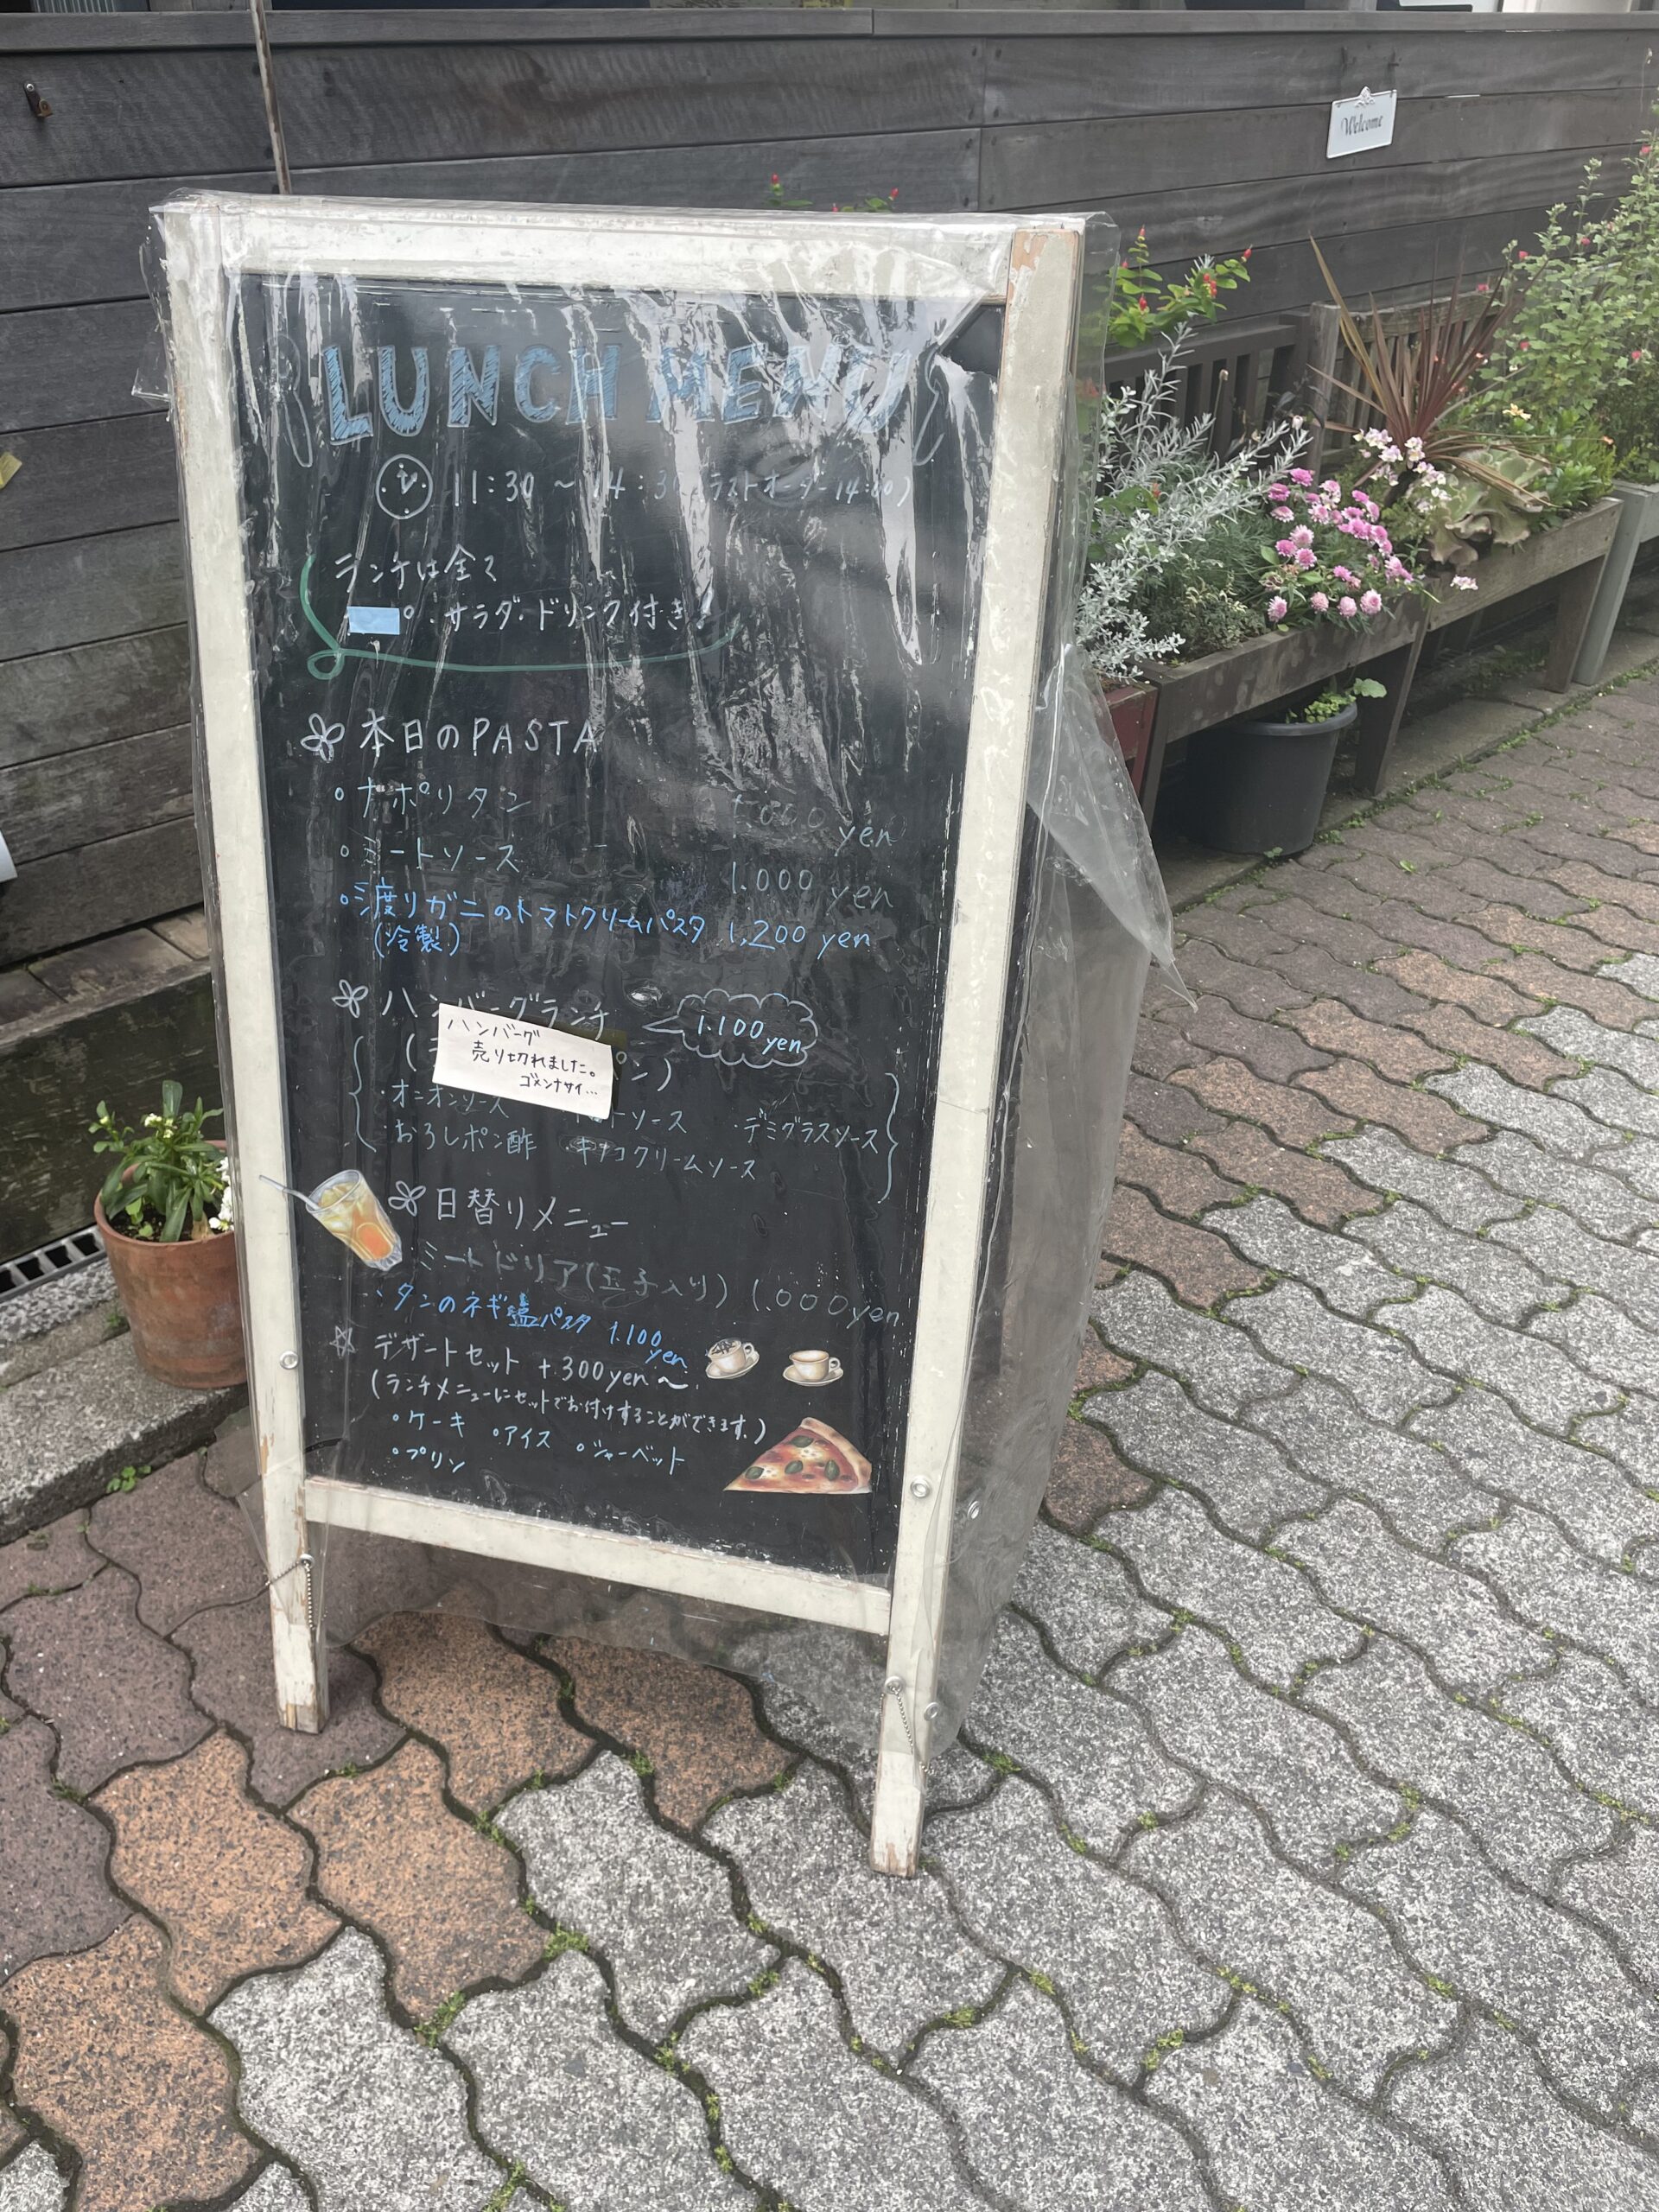 Welcome
LUNCH MENU
11:30 ～ 14:30 (ラストオーダー 14:00)
ランチは全て
プ・サラダ・ドリンク付き!
本日のPASTA
・ナポリタン 1.000 yen
・ミートソース 1.000 yen
・渡りガニのトマトクリームパスタ 1,200 yen
(冷製)
ハンバーグランチ 1.100 yen
ハンバーグ
売り切れました。
ゴメンナサイ…
パン)
・オニオンソース トソース ・デミグラスソース
・おろしポン酢 キノコクリームソース
日替りメニュー
・ミートドリア(玉子入り) 1.000yen
・タンのネギ塩パスタ 1.100 yen
デザートセット +300yen～
(ランチメニューにセットでお付けすることができます。)
・ケーキ ・アイス ・シャーベット
・プリン